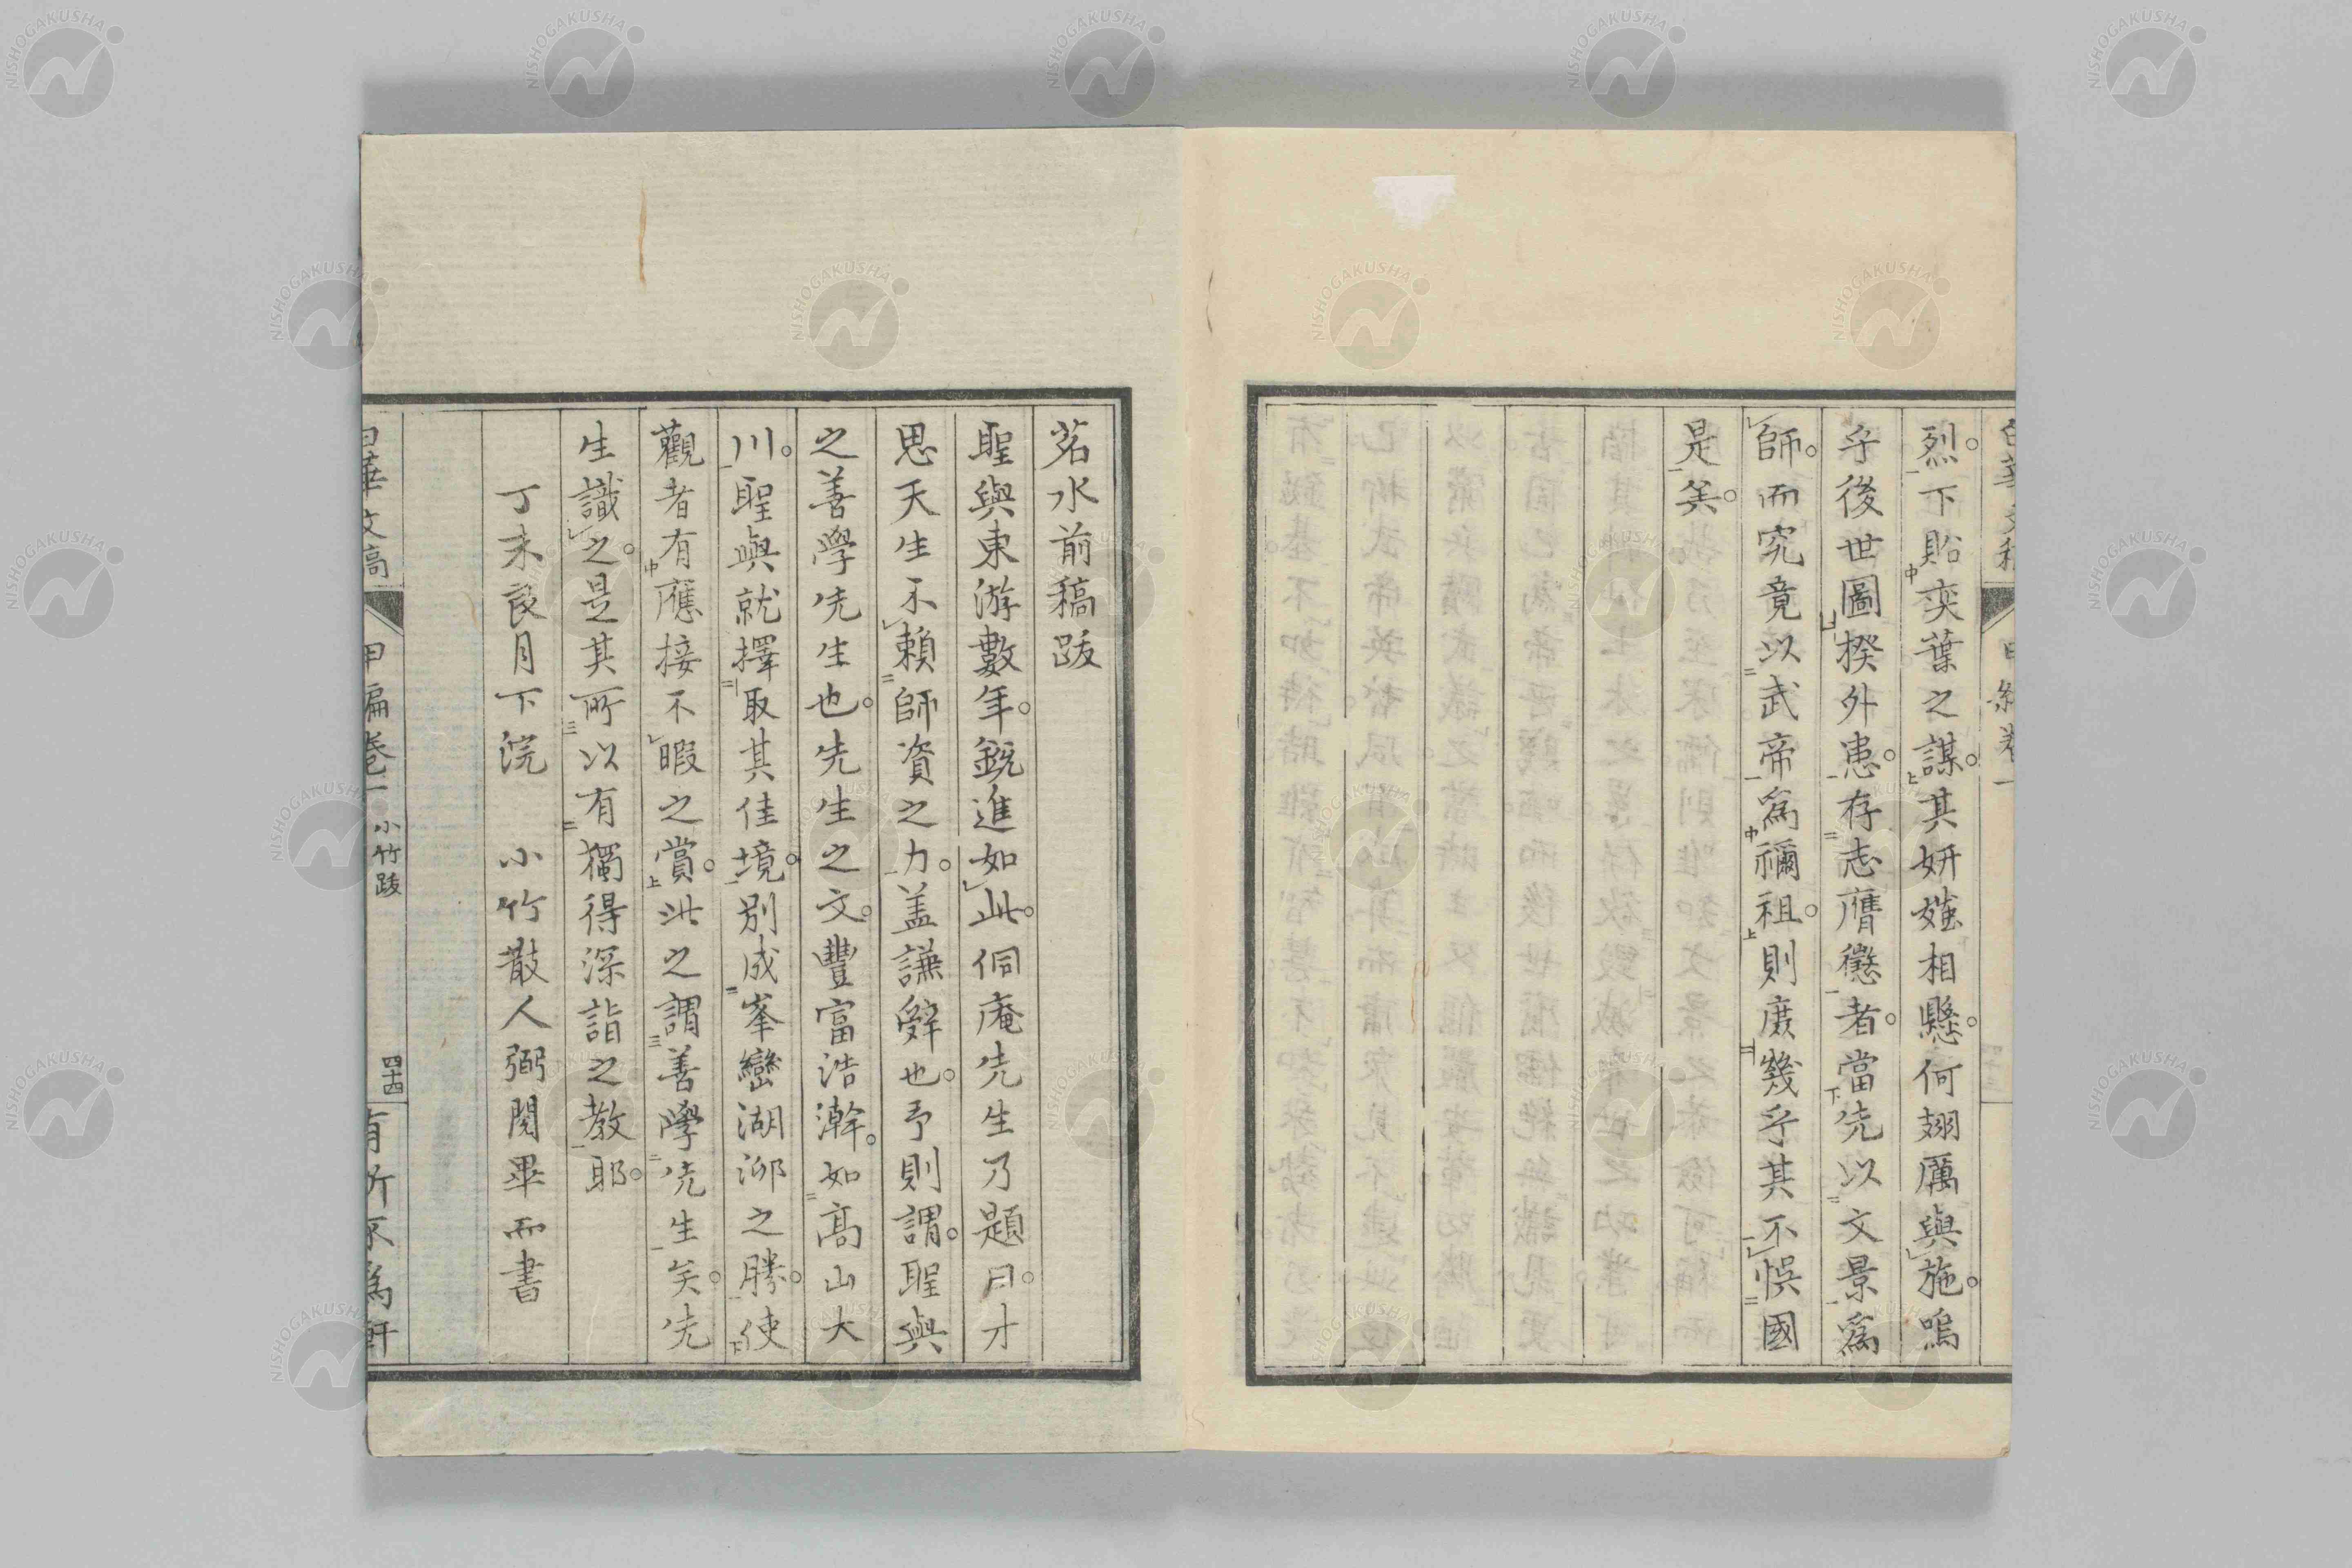 烈。下貽奕葉之謀。其妍媸相懸。何翅厲與施。嗚
乎後世圖揆外患。存志膺懲者。當先以文景爲
師。而究竟以武帝爲禰祖。則庶幾乎其不悞國
是矣。
茗水前稿跋
聖與東游數年。鋭進如此。侗庵先生乃題曰。才
思天生不頼師資之力。盖謙辭也。予則謂。聖與
之善學先生也。先生之文。豐富浩瀚。如高山大
川。聖與就擇取其佳境。別成峯巒湖泖之勝。使
觀者有應接不暇之賞。此之謂善學先生矣。先
生識之。是其所以有獨得深詣之教耶。
丁未良月下浣 小竹散人弼閱畢而書
白華文稿 甲編巻一 小竹跋 四十四 有所不爲軒